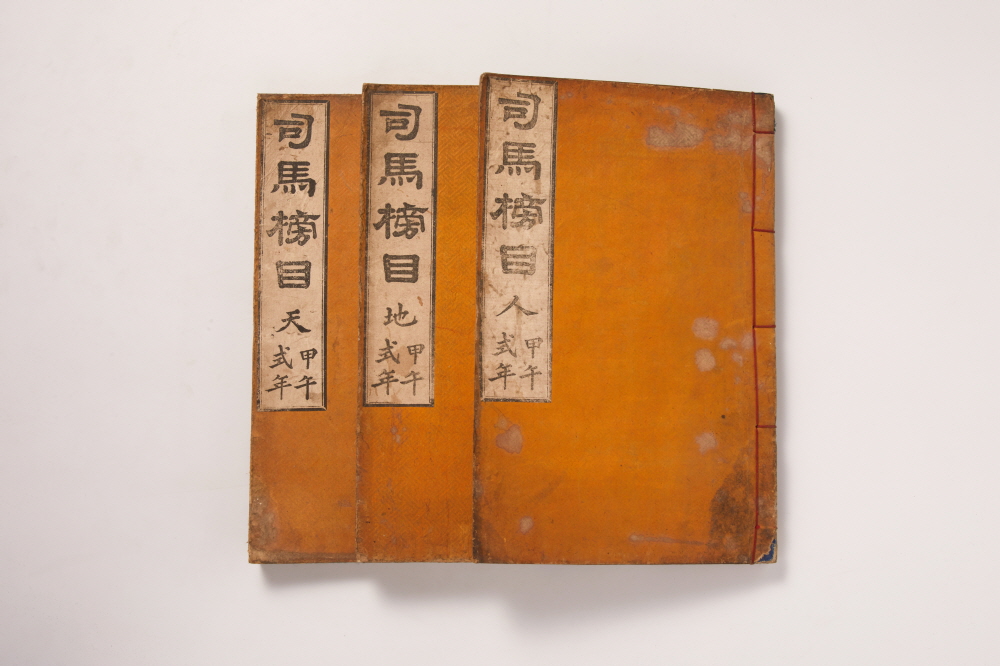 司馬榜目 天
甲午
式年
司馬榜目 地
甲午
式年
司馬榜目 人
甲午
式年